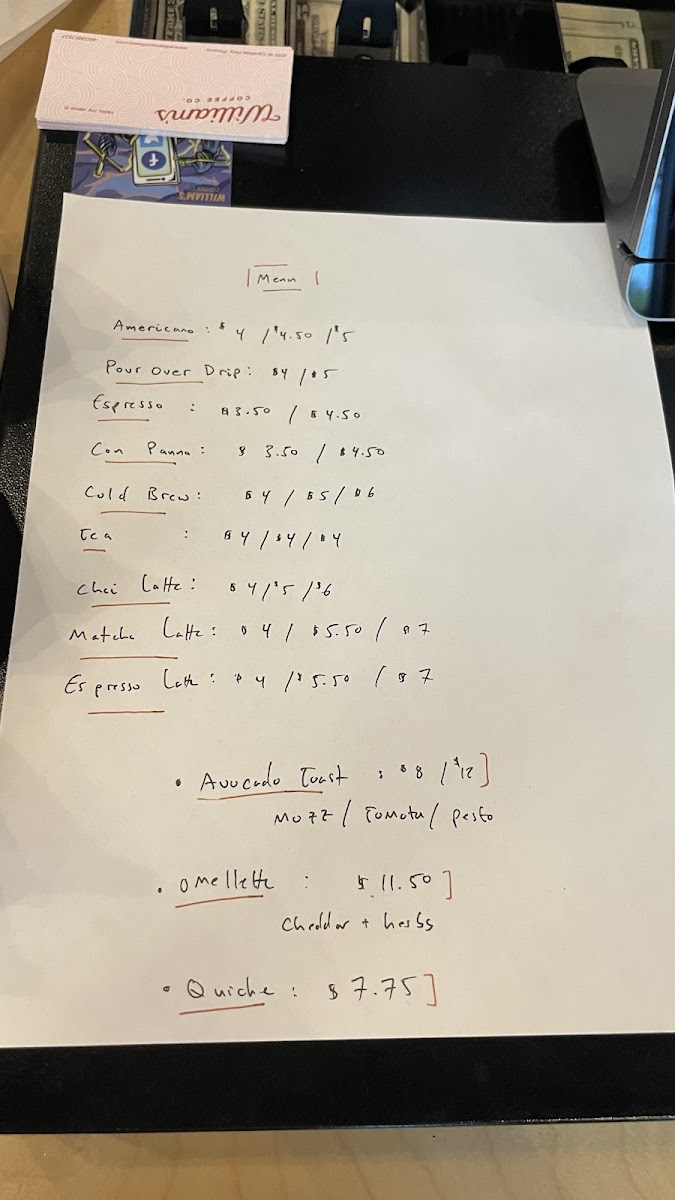 William's
COFFEE CO.
WILLIAM'S
Menu
Americano : $4 / $4.50 / $5
Pour Over Drip : $4 / $5
Espresso : $3.50 / $4.50
Con Panna : $3.50 / $4.50
Cold Brew : $4 / $5 / $6
Tea : $4 / $4 / $4
Chai Latte : $4 / $5 / $6
Matcha Latte : $4 / $5.50 / $7
Espresso Latte : $4 / $5.50 / $7
• Avocado Toast : $8 / $12]
Mozz / Tomato / pesto
• Omellette : $11.50]
Cheddar + herbs
• Quiche : $7.75]